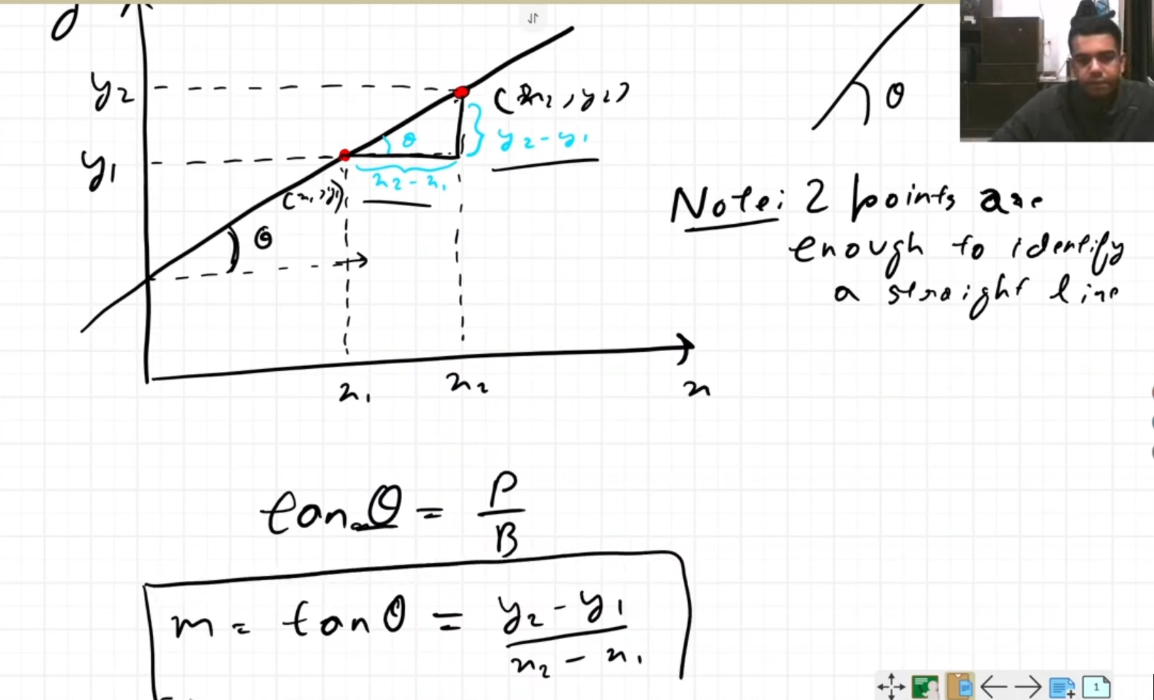 y
y₂
(x₂, y₂)
θ
y₂ - y₁
y₁
(x₁, y₁)
x₂ - x₁
θ
x₁
x₂
x
θ
Note: 2 points are
enough to identify
a straight line
tan θ = P/B
m = tan θ = y₂ - y₁ / x₂ - x₁
1